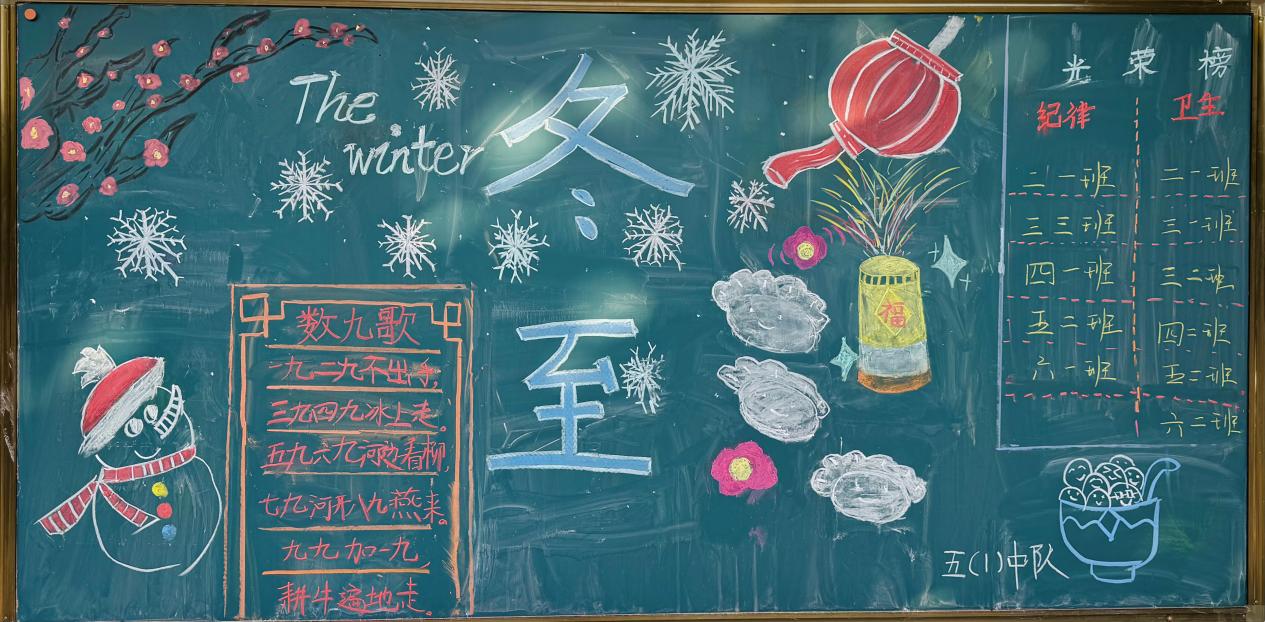 The
winter
冬
至
数九歌
一九二九不出手,
三九四九冰上走。
五九六九河边看柳,
七九河开八九燕来。
九九加一九,
耕牛遍地走。
福
光荣榜
纪律 卫生
二一班 二一班
三三班 三一班
四一班 三二班
五二班 四二班
六一班 五二班
六二班
五(1)中队